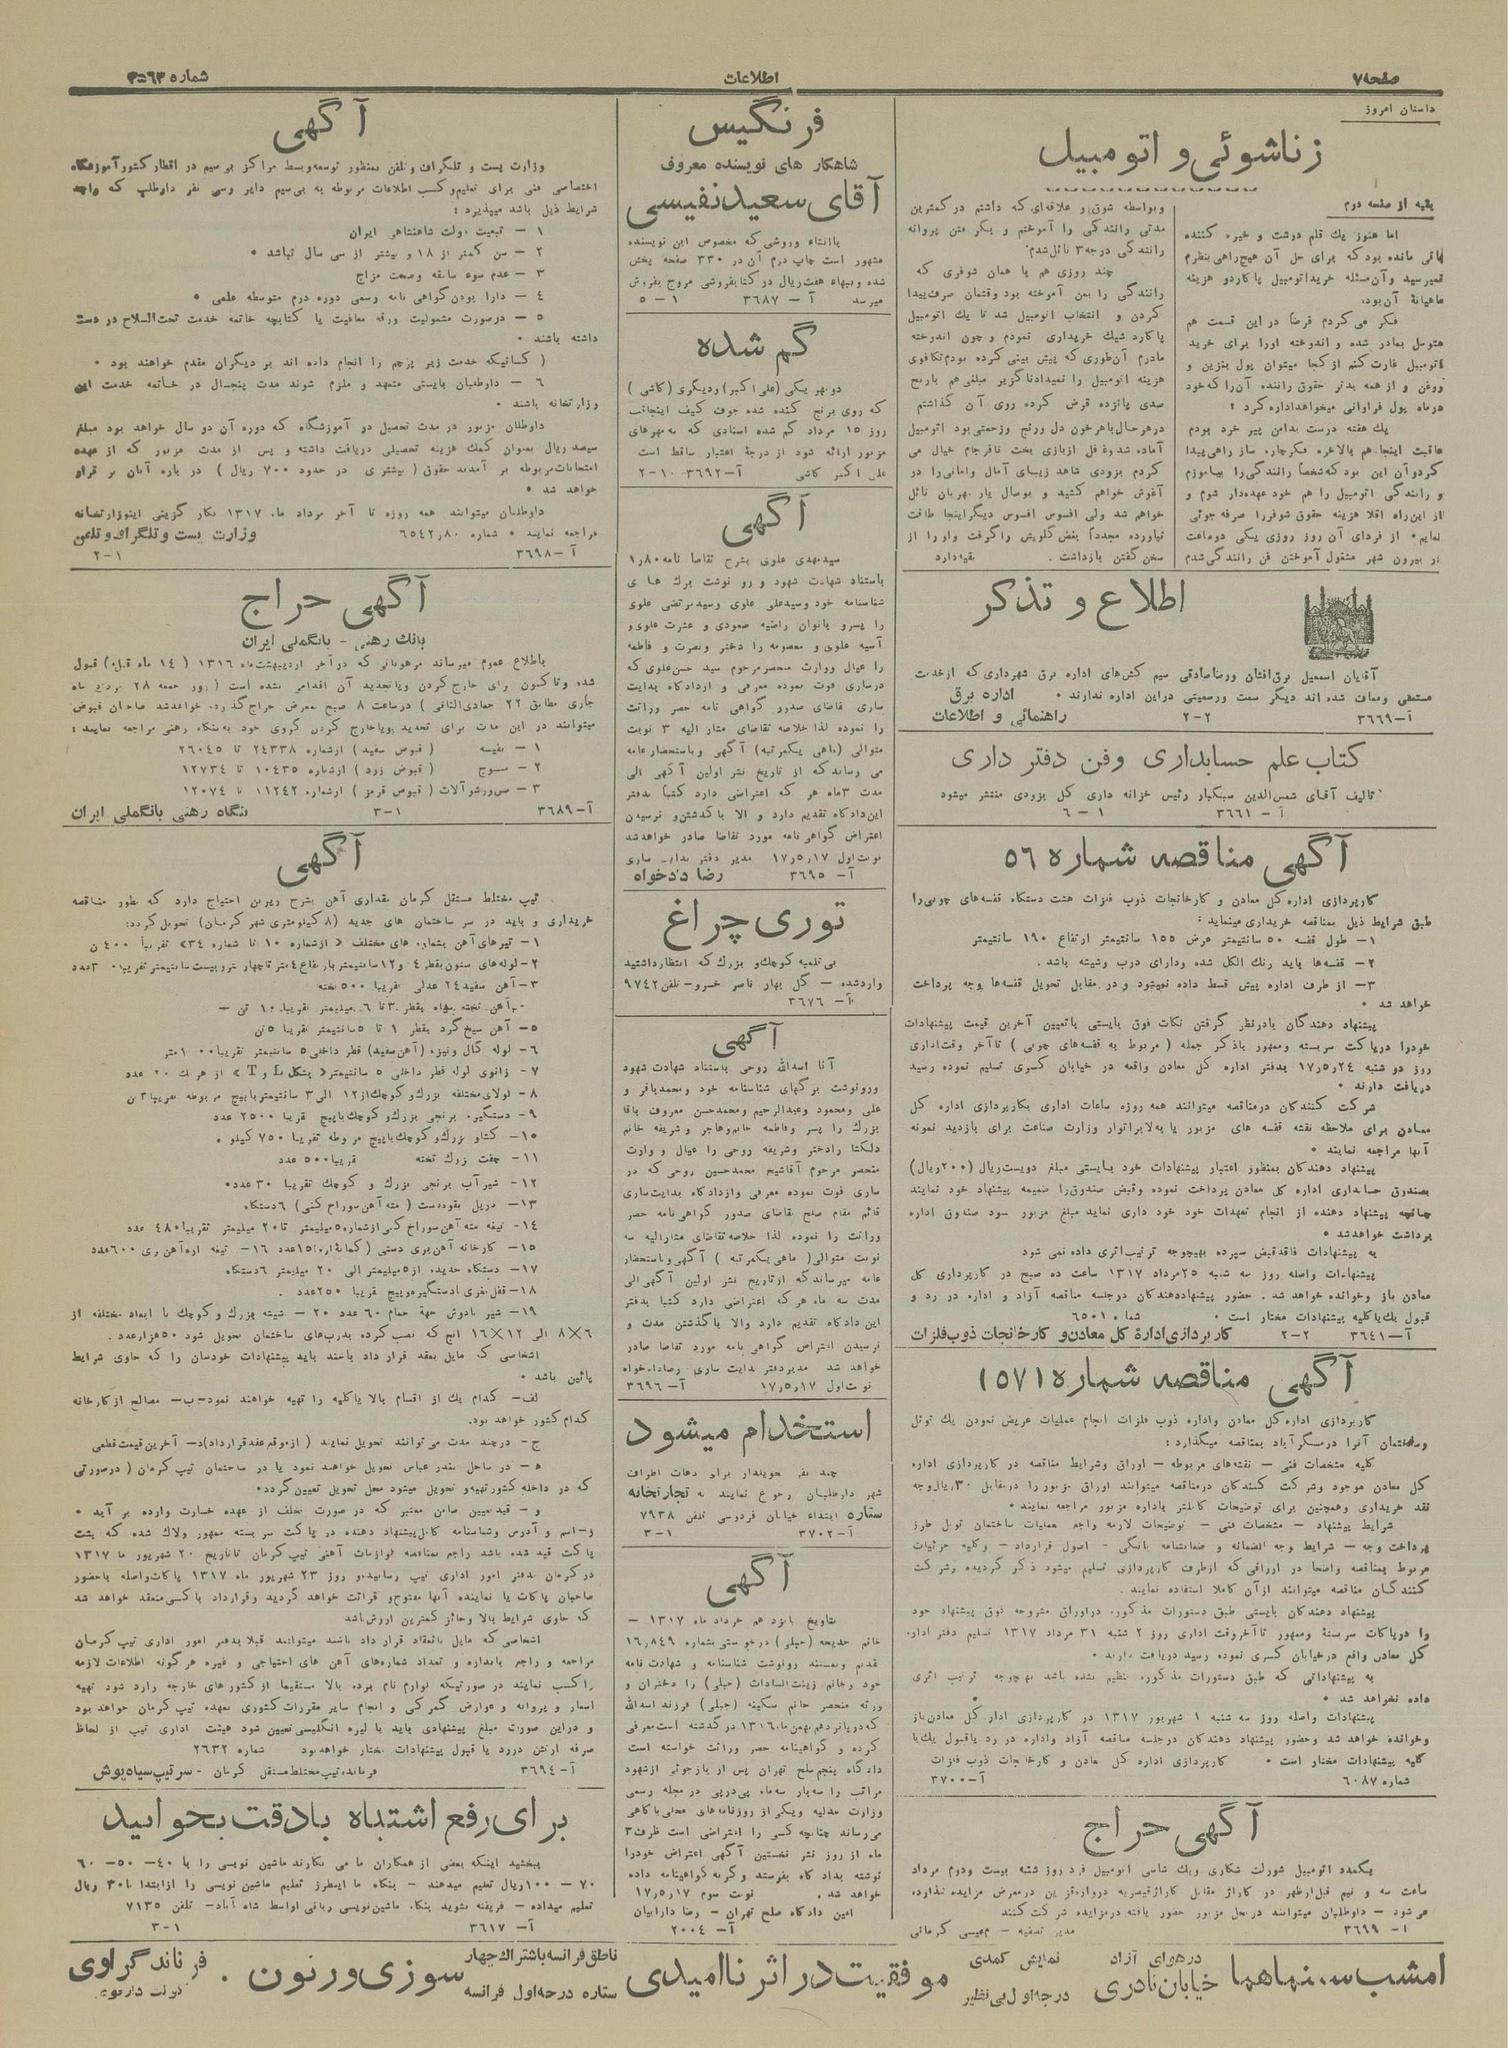 صفحه ۷
اطلاعات
شماره ۳۵۶۳
داستان امروز
زناشوئی و اتومبیل
بقیه از صفحه دوم
اما هنوز یك قلم درشت و خیره کننده
باقی مانده بود که برای حل آن هیچ راهی بنظرم
نمیرسید و آن مسئله خرید اتومبیل پاکارد و هزینه
ماهیانهٔ آن بود.
فکر می کردم فرضاً در این قسمت هم
متوسل بمادر شده و اندوخته اورا برای خرید
اتومبیل غارت کنم از کجا میتوان پول بنزین و
روغن و از همه بدتر حقوق راننده آن را که خود
در ماه پول فراوانی میخواهد اداره کرد ؟
یك هفته درست بدامن پیر خرد بودم
عاقبت اینجا هم بالاخره فکر چاره ساز راهی پیدا
کرد و آن این بود که شخصاً رانندگی را بیاموزم
و رانندگی اتومبیل را هم خود عهده دار شوم و
از این راه اقلا هزینه حقوق شوفر را صرفه جوئی
نمایم • از فردای آن روز روزی یکی دو ساعت
در بیرون شهر مشغول آموختن فن رانندگی شدم
و بواسطه شوق و علاقه ای که داشتم در کمترین
مدتی رانندگی را آموختم و بگرفتن پروانه
رانندگی درجه ۳ نائل شدم.
چند روزی هم با همان شوفری که
رانندگی را بمن آموخته بود وقتمان صرف پیدا
کردن و انتخاب اتومبیل شد تا یك اتومبیل
پاکارد شیك خریداری نمودم و چون اندوخته
مادرم آن طوری که پیش بینی کرده بودم تکافوی
هزینه اتومبیل را نمیداد ناگزیر مبلغی هم با ربح
صدی پانزده قرض کرده روی آن گذاشتم
در هر حال با هر خون دل و رنج و زحمتی بود اتومبیل
آماده شد و غافل از بازی بخت نافرجام خیال می
کردم بزودی شاهد زیبای آمال و امانی را در
آغوش خواهم کشید و بوصال یار مهربان نائل
خواهم شد ولی افسوس افسوس دیگر اینجا طاقت
نیاورده مجدداً بغض گلویش را گرفت و او را از
سخن گفتن بازداشت . بقیه دارد
اطلاع و تذکر
آقایان اسمعیل برق افشان و رضا صادقی سیم کش های اداره برق شهرداری که از خدمت
مستعفی و معاف شده اند دیگر سمت و رسمیتی در این اداره ندارند • اداره برق
آ–۳۶۶۹ ۲–۲ راهنمائی و اطلاعات
کتاب علم حسابداری و فن دفتر داری
تالیف آقای شمس الدین سبکبار رئیس خزانه داری کل بزودی منتشر میشود
آ – ۳۶۶۱ ۱ – ۶
آگهی مناقصه شماره ۵۶
کارپردازی اداره کل معادن و کارخانجات ذوب فلزات هشت دستگاه قفسه های چوبی را
طبق شرایط ذیل بمناقصه خریداری مینماید :
۱– طول قفسه ۵۰ سانتیمتر عرض ۱۵۵ سانتیمتر ارتفاع ۱۹۰ سانتیمتر
۲– قفسه ها باید رنك الکل شده و دارای درب و شیشه باشد .
۳– از طرف اداره پیش قسط داده نمیشود و در مقابل تحویل قفسه ها وجه پرداخت
خواهد شد •
پیشنهاد دهندگان با در نظر گرفتن نکات فوق بایستی با تعیین آخرین قیمت پیشنهادات
خود را در پاکت سربسته و ممهور با ذکر جمله ( مربوط به قفسه های چوبی ) تا آخر وقت اداری
روز دو شنبه ۱۷٫۵٫۲۴ بدفتر اداره کل معادن واقعه در خیابان کسری تسلیم نموده رسید
دریافت دارند •
شرکت کنندگان در مناقصه میتوانند همه روزه ساعات اداری بکارپردازی اداره کل
معادن برای ملاحظه نقشه قفسه های مزبور یا به لابراتوار وزارت صناعت برای بازدید نمونه
آنها مراجعه نمایند •
پیشنهاد دهندگان بمنظور اعتبار پیشنهادات خود بایستی مبلغ دویست ریال (۲۰۰ ریال)
بصندوق حسابداری اداره کل معادن پرداخت نموده و قبض صندوق را ضمیمه پیشنهاد خود نمایند
چنانچه پیشنهاد دهنده از انجام تعهدات خود خود داری نماید مبلغ مزبور بسود صندوق اداره
برداشت خواهد شد •
به پیشنهادات فاقد قبض سپرده بهیچوجه ترتیب اثری داده نمی شود
پیشنهادات واصله روز سه شنبه ۲۵ مرداد ۱۳۱۷ ساعت ده صبح در کارپردازی کل
معادن باز و خوانده خواهد شد . حضور پیشنهاد دهندگان در جلسه مناقصه آزاد و اداره در رد و
قبول یك یا کلیه پیشنهادات مختار است • شماره ۶۵۰۱
آ–۳۶۴۱ ۲–۲ کارپردازی ادارهٔ کل معادن و کارخانجات ذوب فلزات
آگهی مناقصه شماره (۵۷۱)
کارپردازی اداره کل معادن و اداره ذوب فلزات انجام عملیات عریض نمودن یك تونل
و ساختمان آنرا در مسگر آباد بمناقصه میگذارد :
کلیه مشخصات فنی – نقشه های مربوطه – اوراق و شرایط مناقصه در کارپردازی اداره
کل معادن موجود و شرکت کنندگان در مناقصه میتوانند اوراق مزبور را در مقابل ۳۰ ریال وجه
نقد خریداری و همچنین برای توضیحات کاملتر باداره مزبور مراجعه نمایند •
شرایط پیشنهاد – مشخصات فنی – توضیحات لازمه راجع بعملیات ساختمان تونل طرز
پرداخت وجه – شرایط وجه الضمانه و ضمانتنامه بانکی – اصول قرارداد – و کلیه جزئیات
مربوط بمناقصه واضحا در اوراقی که از طرف کارپردازی تسلیم میشود ذکر گردیده و شرکت
کنندگان مناقصه میتوانند از آن کاملا استفاده نمایند .
پیشنهاد دهندگان بایستی طبق دستورات مذکوره در اوراق مشروحه فوق پیشنهاد خود
را در پاکات سربسته و ممهور تا آخر وقت اداری روز ۲ شنبه ۳۱ مرداد ۱۳۱۷ تسلیم دفتر اداره
کل معادن واقع در خیابان کسری نموده رسید دریافت دارند •
به پیشنهاداتی که طبق دستورات مذکوره تنظیم نشده باشد بهیچوجه ترتیب اثری
داده نخواهد شد •
پیشنهادات واصله روز سه شنبه ۱ شهریور ۱۳۱۷ در کارپردازی اداره کل معادن باز
و خوانده خواهد شد و حضور پیشنهاد دهندگان در جلسه مناقصه آزاد و اداره در رد یا قبول یك یا
کلیه پیشنهادات مختار است • کارپردازی اداره کل معادن و کارخانجات ذوب فلزات
شماره ۶۰۸۷ آ–۳۷۰۰
آگهی حراج
یکعدد اتومبیل شورلت شکاری و یك شاسی اتومبیل فرد روز شنبه بیست و دوم مرداد
ساعت سه و نیم قبل از ظهر در گاراژ مقابل گاراژ قیصریه دروازه قزوین در معرض مزایده گذارده
می شود – داوطلبان میتوانند در محل مزبور حضور یافته در مزایده شرکت کنند
آ– ۳۶۹۹ مدیر تصفیه – م عیسی کرمانی
فرنگیس
شاهکار های نویسنده معروف
آقای سعید نفیسی
با انشاء و روشی که مخصوص این نویسنده
مشهور است چاپ دوم آن در ۳۳۰ صفحه پخش
شده و ببهاء هفت ریال در کتابفروشی مروج بفروش
میرسد آ – ۳۶۸۷ ۱–۵
گم شده
دو مهر یکی (علی اکبر) و دیگری (کاشی)
که روی برنج کنده شده جوف کیف اینجانب
روز ۱۵ مرداد گم شده اسنادی که به مهرهای
مزبور ارائه شود از درجهٔ اعتبار ساقط است
علی اکبر کاشی آ–۳۶۹۲ ۱۰–۲
آگهی
سید مهدی علوی بشرح تقاضا نامه ۱٫۸۰
باستناد شهادت شهود و رو نوشت برك های
شناسنامه خود و سید علی علوی و سید مرتضی علوی
را پسر و بانوان راضیه صمودی و عشرت علوی و
آسیه علوی و معصومه را دختر و نصرت و فاطمه
را عیال و وراث منحصر مرحوم سید حسن علوی که
در ساری فوت نموده معرفی و از دادگاه بدایت
ساری تقاضای صدور گواهی نامه حصر وراثت
را نموده لذا خلاصه تقاضای مشار الیه ۳ نوبت
متوالی (ماهی یکمرتبه) آگهی و باستحضار عامه
می رساند که از تاریخ نشر اولین آگهی الی
مدت ۳ ماه هر که اعتراضی دارد کتباً بدفتر
این دادگاه تقدیم دارد و الا با گذشتن و نرسیدن
اعتراض گواهی نامه مورد تقاضا صادر خواهد شد
نوبت اول ۱۷٫۵٫۱۷ مدیر دفتر بدایت ساری
آ– ۳۶۹۵ رضا دادخواه
توری چراغ
بی تلمبه کوچك و بزرك که انتظار داشتید
وارد شده – گل بهار ناصر خسرو – تلفن ۹۷۴۲
آ– ۳۶۷۶
آگهی
آقا اسدالله روحی باستناد شهادت شهود
و رونوشت برگهای شناسنامه خود و محمد باقر و
علی و محمود و عبدالرحیم و محمد حسن معروف بآقا
بزرك را پسر و فاطمه خانم و هاجر و شریفه خانم
دلگشا را دختر و شریفه روحی را عیال و وراث
منحصر مرحوم آقا شیخ محمد حسین روحی که در
ساری فوت نموده معرفی و از دادگاه بدایت ساری
قائم مقام صلح تقاضای صدور گواهی نامه حصر
وراثت را نموده لذا خلاصه تقاضای مشار الیه سه
نوبت متوالی ( ماهی یکمرتبه ) آگهی و باستحضار
عامه میرساند که از تاریخ نشر اولین آگهی الی
مدت سه ماه هر که اعتراضی دارد کتبا بدفتر
این دادگاه تقدیم دارد و الا با گذشتن مدت و
نرسیدن اعتراض گواهی نامه مورد تقاضا صادر
خواهد شد مدیر دفتر بدایت ساری رضا دادخواه
نوبت اول ۱۷٫۵٫۱۷ آ– ۳۶۹۶
استخدام میشود
چند نفر تحویلدار برای دهات اطراف
شهر داوطلبان رجوع نمایند به تجارتخانه
ستاره ابتداء خیابان فردوسی تلفن ۷۹۳۸
آ–۳۷۰۲ ۱–۳
آگهی
بتاریخ پانزدهم خرداد ماه ۱۳۱۷ –
خانم خدیجه (جبلی) درخواستی بشماره ۱۶٫۸۴۹
تقدیم و بمستند رونوشت شناسنامه و شهادت نامه
خود و خانم زینت السادات (جبلی) را دختران و
ورثه منحصر خانم سکینه (جبلی) فرزند اسدالله
که در پانزدهم بهمن ماه ۱۳۱۶ در گذشته است معرفی
کرده و گواهینامه حصر وراثت خواسته است
دادگاه پنجم صلح تهران پس از بازجوئی از شهود
مراتب را سه بار سه ماه پی در پی در مجله رسمی
وزارت عدلیه و یکی از روزنامه های محلی با گاهی
می رساند چنانچه کسی را اعتراضی است ظرف ۳
ماه از روز نشر نخستین آگهی اعتراض خود را
نوشته بدادگاه بفرستد و گرنه گواهینامه داده
خواهد شد . نوبت سوم ۱۷٫۵٫۱۷
امین دادگاه صلح تهران – رضا دارابیان
آ– ۲۰۰۴
آگهی
وزارت پست و تلگراف و تلفن بمنظور توسعه و بسط مراکز بی سیم در اقطار کشور آموزشگاه
اختصاصی فنی برای تعلیم و کسب اطلاعات مربوطه به بی سیم دایر و سی نفر داوطلب که واجد
شرایط ذیل باشد میپذیرد :
۱ – تبعیت دولت شاهنشاهی ایران
۲ – سن کمتر از ۱۸ و بیشتر از سی سال نباشد •
۳ – عدم سوء سابقه و صحت مزاج
۴ – دارا بودن گواهی نامه رسمی دوره دوم متوسطه علمی •
۵ – در صورت مشمولیت ورقه معافیت یا کتابچه خاتمه خدمت تحت السلاح در دست
داشته باشند •
( کسانیکه خدمت زیر پرچم را انجام داده اند بر دیگران مقدم خواهند بود •
۶ – داوطلبان بایستی متعهد و ملزم شوند مدت پنجسال در خاتمه خدمت این
وزارتخانه باشند •
داوطلبان مزبور در مدت تحصیل در آموزشگاه که دوره آن دو سال خواهد بود مبلغ
سیصد ریال بعنوان کمك هزینه تحصیلی دریافت داشته و پس از مدت مزبور که از عهده
امتحانات مربوطه بر آمدند حقوق ( بیشتری در حدود ۷۰۰ ریال ) در باره آنان بر قرار
خواهد شد •
داوطلبان میتوانند همه روزه تا آخر مرداد ماه ۱۳۱۷ بکار گزینی اینوزارتخانه
مراجعه نمایند • شماره ۶۵۴۲٫۸۰ وزارت پست و تلگراف و تلفن
آ–۳۶۹۸ ۱–۲
آگهی حراج
بانك رهنی – بانگملی ایران
باطلاع عموم میرساند مرهوناتی که در آخر اردیبهشت ماه ۱۳۱۶ ( ۱۴ ماه قبل ) قبول
شده و تا کنون برای خارج کردن و یا تجدید آن اقدامی نشده است ( روز جمعه ۲۸ مرداد ماه
جاری مطابق ۲۲ جمادی الثانی ) در ساعت ۸ صبح بمعرض حراج گذارده خواهد شد صاحبان قبوض
میتوانند در این مدت برای تجدید و یا خارج کردن گروی خود به بنگاه رهنی مراجعه نمایند :
۱ – نفیسه ( قبوض سفید ) از شماره ۲۴۳۳۸ تا ۲۶۰۴۵
۲ – منسوج ( قبوض زرد ) از شماره ۱۰۴۳۵ تا ۱۲۷۳۴
۳ – مس و ورشو آلات ( قبوض قرمز ) از شماره ۱۱۲۴۲ تا ۱۲۰۷۴
آ–۳۶۸۹ ۱–۳ بنگاه رهنی بانگملی ایران
آگهی
تیپ مختلط مستقل کرمان مقداری آهن بشرح زیرین احتیاج دارد که بطور مناقصه
خریداری و باید در سر ساختمان های جدید (۸ کیلومتری شهر کرمان) تحویل گردد:
۱– تیرهای آهن بشماره های مختلف « از شماره ۱۰ تا شماره ۳۴» تقریباً ۴۰۰ تن
۳–آهن سفید ۲۴ عدلی تقریبا ۵۰۰ تخته
۵– آهن سیخ گرد بقطر ۱ تا ۵ سانتیمتر تقریبا ۵ تن
۶– لوله گالوانیزه (آهن سفید) قطر داخلی ۵ سانتیمتر تقریبا ۱۰۰ متر
۷– زانوی لوله قطر داخلی ۵ سانتیمتر « بشکل L و T » از هر یك ۲۰ عدد
۹– دستگیره برنجی بزرك و کوچك با پیچ تقریبا ۲۵۰۰ عدد
۱۰– کشاو بزرك و کوچك با پیچ مربوطه تقریبا ۷۵۰ کیلو •
۱۱– چفت بزرك تخته تقریبا ۵۰۰ عدد
۱۲– شیر آب برنجی بزرك و کوچك تقریبا ۳۰ عدد•
۱۳– دریل بقوه دست ( مته آهن سوراخ کنی ) ۶ دستگاه
۱۴– تیغه مته آهن سوراخ کنی از شماره ۵ میلیمتر تا ۲۰ میلیمتر تقریبا ۴۸۰ عدد
۱۵– کارخانه آهن بری دستی ( کمان اره ) ۱۵ عدد ۱۶– تیغه اره آهن بری ۶۰۰ عدد
۱۷– دستگاه حدیده از ۵ میلیمتر الی ۲۰ میلیمتر ۶ دستگاه
۱۸– قفل مغزی با دستگیره و پیچ تقریبا ۲۵۰ عدد .
۱۹– شیر با دوش جهة حمام ۶۰ عدد ۲۰ – شیشه بزرك و کوچك با ابعاد مختلفه از
۸×۶ الی ۱۲×۱۶ انج که نصب کرده بدربهای ساختمان تحویل شود ۵۰ هزار عدد.
اشخاصی که مایل بعقد قرار داد باشند باید پیشنهادات خودسان را که حاوی شرایط
پائین باشد •
الف– کدام یك از اقسام بالا یا کلیه را تهیه خواهند نمود– ب – مصالح از کارخانه
کدام کشور خواهد بود.
ج – در چند مدت می توانند تحویل نمایند ( از موقع عقد قرارداد) د– آخرین قیمت قطعی
ه – در ساحل بندر عباس تحویل خواهند نمود یا در ساختمان تیپ کرمان ( در صورتی
که در داخله کشور تهیه و تحویل میشود محل تحویل تعیین گردد•
و – قید تعیین ضامن معتبر که در صورت تخلف از عهده خسارت وارده بر آید •
ز–اسم و آدرس و شناسنامه کامل پیشنهاد دهنده در پاکت سر بسته ممهور و لاك شده که پشت
پاکت قید شده باشد راجع بمناقصه لوازمات آهنی تیپ کرمان تا تاریخ ۲۰ شهریور ماه ۱۳۱۷
در کرمان بدفتر امور اداری تیپ رسانیده و روز ۲۳ شهریور ماه ۱۳۱۷ پاکات واصله با حضور
صاحبان پاکات یا نماینده آنها مفتوح و قرائت خواهد گردید و قرارداد با کسی منعقد خواهد شد
که حاوی شرایط بالا و حائز کمترین ارزش باشد
اشخاصی که مایل بانعقاد قرار داد باشند میتوانند قبلا بدفتر امور اداری تیپ کرمان
مراجعه و راجع باندازه و تعداد شماره های آهن های احتیاجی و غیره هر گونه اطلاعات لازمه
را کسب نمایند در صورتیکه لوازم نام برده بالا مستقیما از کشور های خارجه وارد شود تهیه
اسعار و پروانه و عوارض گمرکی و انجام سایر مقررات کشوری بعهده تیپ کرمان خواهد بود
و در این صورت مبلغ پیشنهادی باید با لیره انگلیسی تعیین شود هیئت اداری تیپ از لحاظ
صرفه ارتش در رد یا قبول پیشنهادات مختار خواهد بود شماره ۲۶۳۲
آ–۳۶۹۴ فرمانده تیپ مختلط مستقل کرمان – سرتیپ سیاه پوش
برای رفع اشتباه با دقت بخوانید
ببخشید اینکه بعضی از همکاران ما می نگارند ماشین نویسی را با ۴۰– ۵۰– ۶۰
۷۰ – ۱۰۰ ریال تعلیم میدهند – بنگاه ما اینطرز تعلیم ماشین نویسی را از ابتدا تا ۳۰ ریال
تعلیم میداده – فریفته نشوید بنگاه ماشین نویسی رباقی اواسط شاه آباد– تلفن ۷۱۳۵
آ– ۳۶۱۷ ۱–۳
امشب سینما هما
در هوای آزاد
خیابان نادری
نمایش کمدی
درجه اول بی نظیر
موفقیت در اثر ناامیدی
ناطق فرانسه باشتراك چهار
ستاره درجه اول فرانسه
سوزی ورنون .
فرناند گراوی